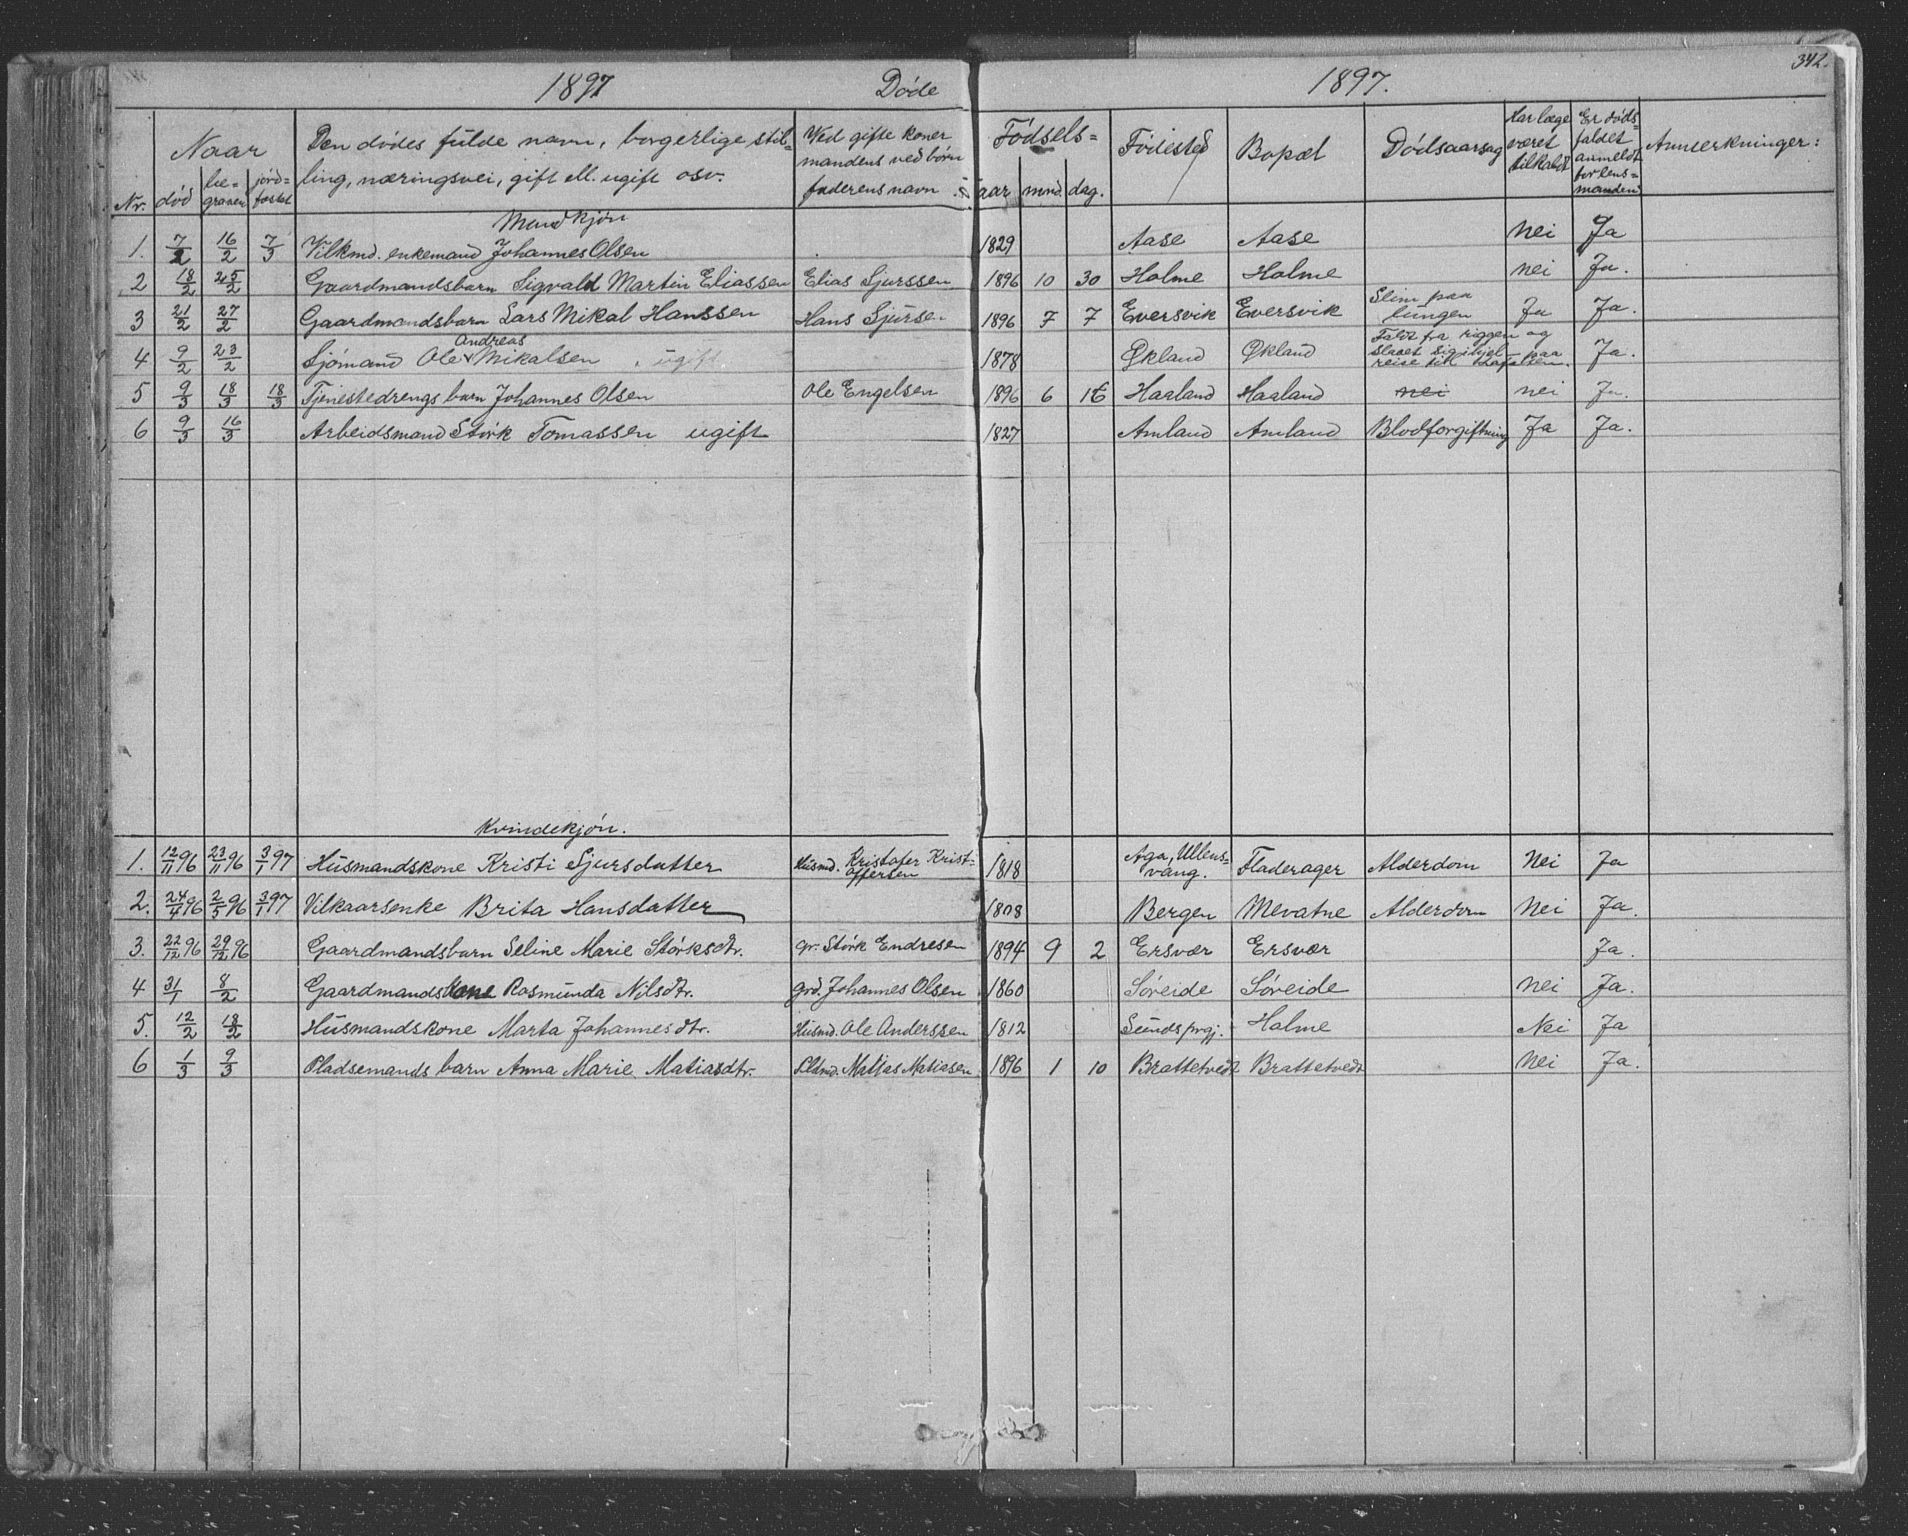 342.
1897 Døde 1897.
Nr. Naar død begraven jordfæstet Den dødes fulde navn, borgerlige stilling, næringsvei, gift ell. ugift osv. Ved gifte koner mandens ved børn faderens navn Fødsels= aar mnd. dag. Fødested Bopæl Dødsaarsag Har læge været tilkaldt Er dødsfaldet anmeldt for lensmanden Anmerkninger:
Mandkjøn
1. 7/2 16/2 7/3 Vilkmd. enkemand Johannes Olsen 1829 Aase Aase Nei Ja
2 18/2 25/2 Gaardmandsbarn Sigvald Martin Eliassen Elias Sjurssen 1896 10 30 Holme Holme nei Ja.
3 21/2 27/2 Gaardmandsbarn Lars Mikal Hanssen Hans Sjursen 1896 7 7 Eversvik Eversvik Slim paa lungen Ja Ja.
4 9/2 23/2 Sjømand Ole Andreas Mikalsen ugift 1878 Økland Økland Faldt fra riggen og slaaet sig ihjel paa reise til Ja.
5 9/3 18/3 18/3 Tjenestedrengs barn Johannes Olsen Ole Engelsen 1896 6 16 Haaland Haaland nei nei Ja.
6 9/3 16/3 Arbeidsmand Størk Tomassen ugift 1827 Amland Amland Blodforgiftning Ja Ja.
Kvindekjøn.
1. 12/11 96 23/11 96 3/1 97 Husmandskone Kristi Sjursdatter Husmd. Kristofer Kristoffersen 1818 Aga, Ullensvang. Fladerager Alderdom Nei Ja
2. 24/4 96 2/5 96 3/1 97 Vilkaarsenke Brita Hansdatter 1808 Bergen Mevatne Alderdom Nei Ja.
3. 22/12 96 29/12 96 Gaardmandsbarn Seline Marie Størksdtr. gr. Størk Endresen 1894 9 2 Ersvær Ersvær Ja.
4 31/1 8/2 Gaardmandskone Rasmunda Nilsdtr. grd. Johannes Olsen 1860 Søreide Søreide Nei Ja.
5. 12/2 18/2 Husmandskone Marta Johannesdtr. Husmd. Ole Anderssen 1812 Sunds prgj. Holme Nei Ja
6 1/3 9/3 Pladsemands barn Anna Marie Matiasdtr. Matias Matiasen 1896 1 10 Brattetvedt Brattetvedt Nei Ja.